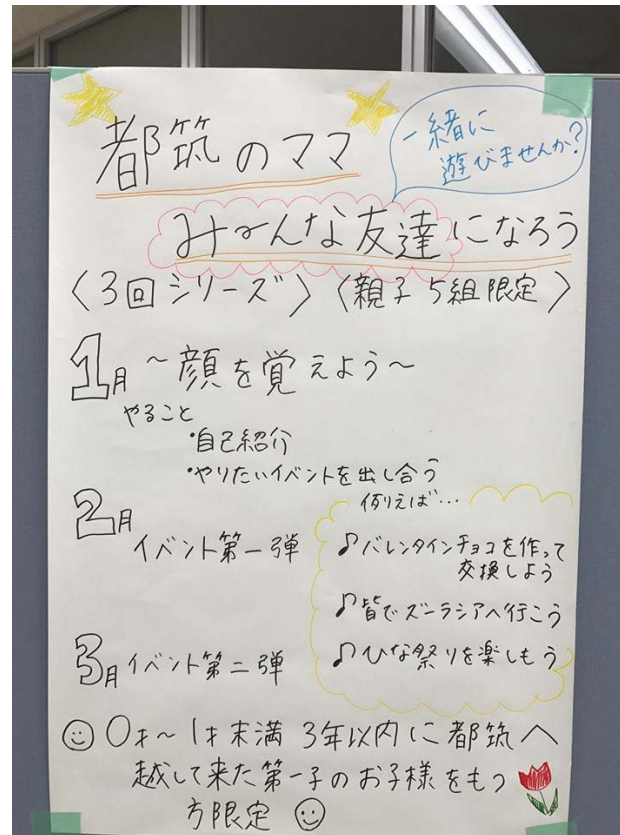 都筑のママ
一緒に
遊びませんか?
み〜んな友達になろう
〈3回シリーズ〉〈親子5組限定〉
1月 〜顔を覚えよう〜
やること
・自己紹介
・やりたいイベントを出し合う
例えば…
2月
イベント第一弾
♪バレンタインチョコを作って
交換しよう
♪皆でズーラシアへ行こう
♪ひな祭りを楽しもう
3月 イベント第二弾
0才〜1才未満 3年以内に都筑へ
越して来た第一子のお子様をもつ
方限定